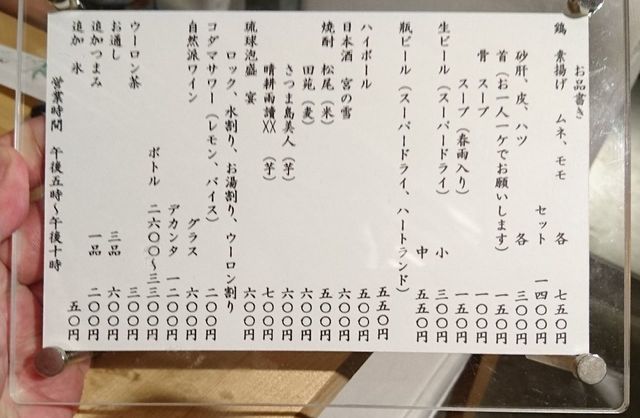 お品書き
鶏 素揚げ ムネ、モモ 各 七五〇円
セット 一四〇〇円
砂肝、皮、ハツ 各 三〇〇円
首（お一人一ケでお願いします） 一五〇円
骨 スープ 一〇〇円
スープ（春雨入り） 一五〇円
生ビール（スーパードライ） 小 三〇〇円
中 五五〇円
瓶ビール（スーパードライ、ハートランド） 五五〇円
ハイボール 五〇〇円
日本酒 宮の雪 六〇〇円
焼酎 松尾（米） 五〇〇円
田苑（麦） 六〇〇円
さつま島美人（芋） 六〇〇円
晴耕雨讀XX（芋） 七〇〇円
琉球泡盛 宴 六〇〇円
ロック、水割り、お湯割り、ウーロン割り
コダマサワー（レモン、バイス） 二〇〇円
自然派ワイン グラス 六〇〇円
デカンタ 一二〇〇円
ボトル 二六〇〇〜三三〇〇円
ウーロン茶 三〇〇円
お通し 三品 六〇〇円
追加つまみ 一品 二〇〇円
追加 氷 五〇円
営業時間 午後五時〜午後十時